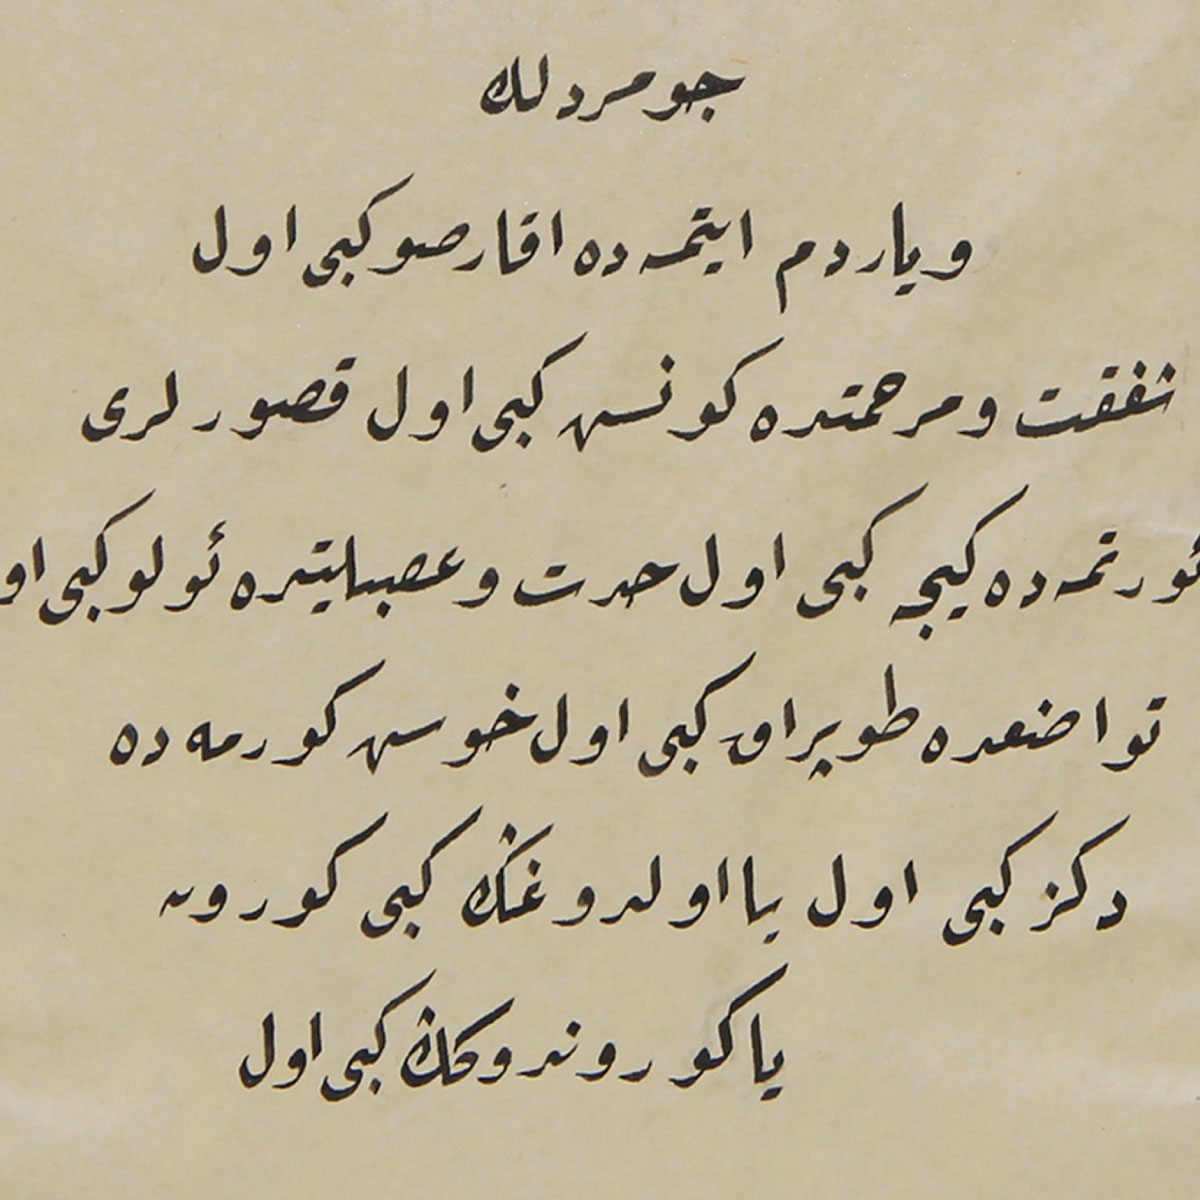 جومردلك
و ياردم ايتمه ده اقار صو كبى اول
شفقت و مرحمتده كونش كبى اول قصورلرى
ئورتمه ده كيجه كبى اول حدت و عصبيلتيده ئولو كبى او
تواضعده طوپراق كبى اول خوش كورمه ده
دكز كبى اول يا اولدوغڭ كبى كورون
يا كوروندوكڭ كبى اول